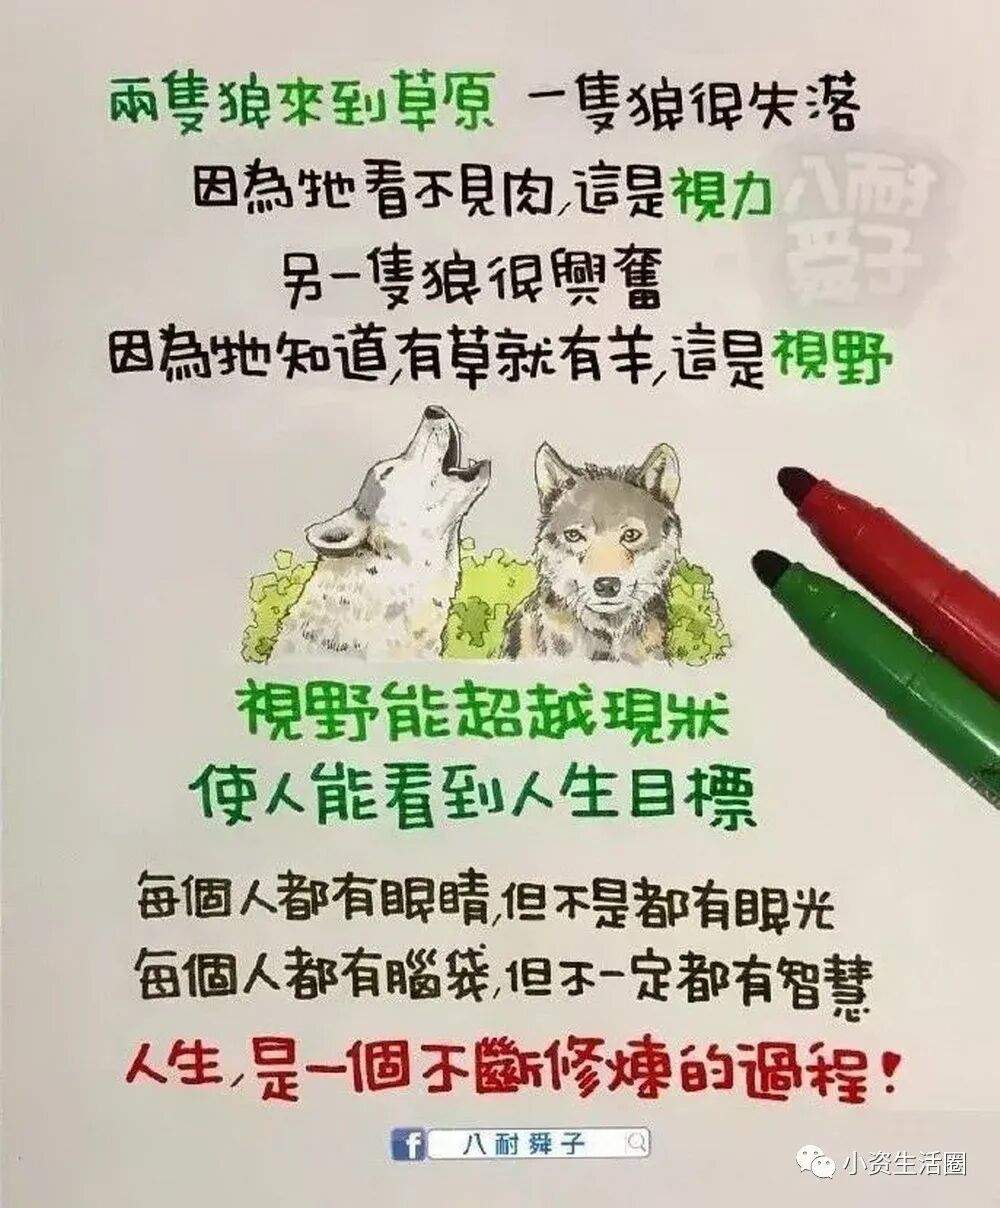 兩隻狼來到草原 一隻狼很失落
因為牠看不見肉,這是視力
另一隻狼很興奮
因為牠知道,有草就有羊,這是視野
八耐
舜子
視野能超越現狀
使人能看到人生目標
每個人都有眼睛,但不是都有眼光
每個人都有腦袋,但不一定都有智慧
人生,是一個不斷修煉的過程!
f 八耐舜子
小资生活圈